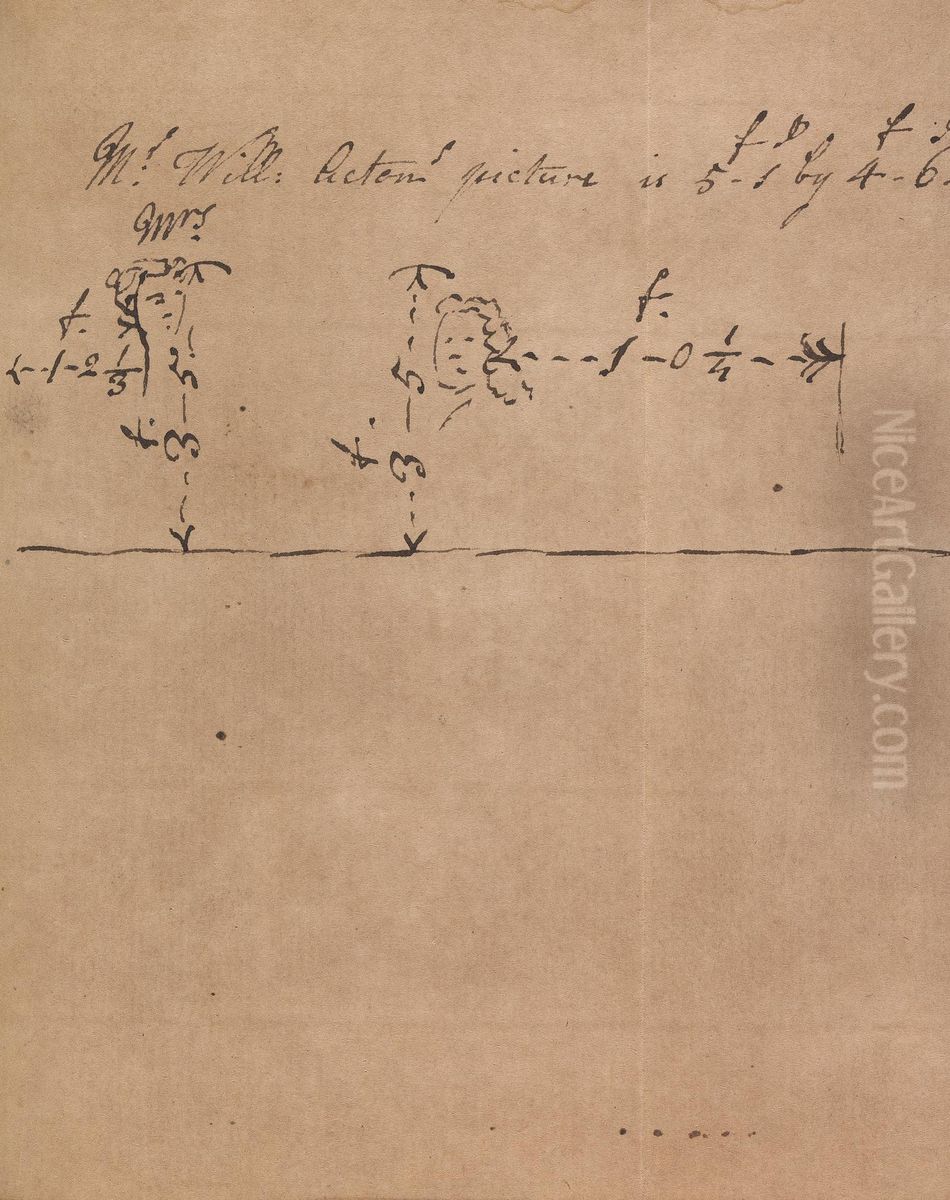 Mr. Will: Actons picture is 5-1 by 4-6
f f
Mrs
f. f.
1-2 1/3
3-5
f.
3-5
f.
1-0 1/4
NiceArtGallery.com